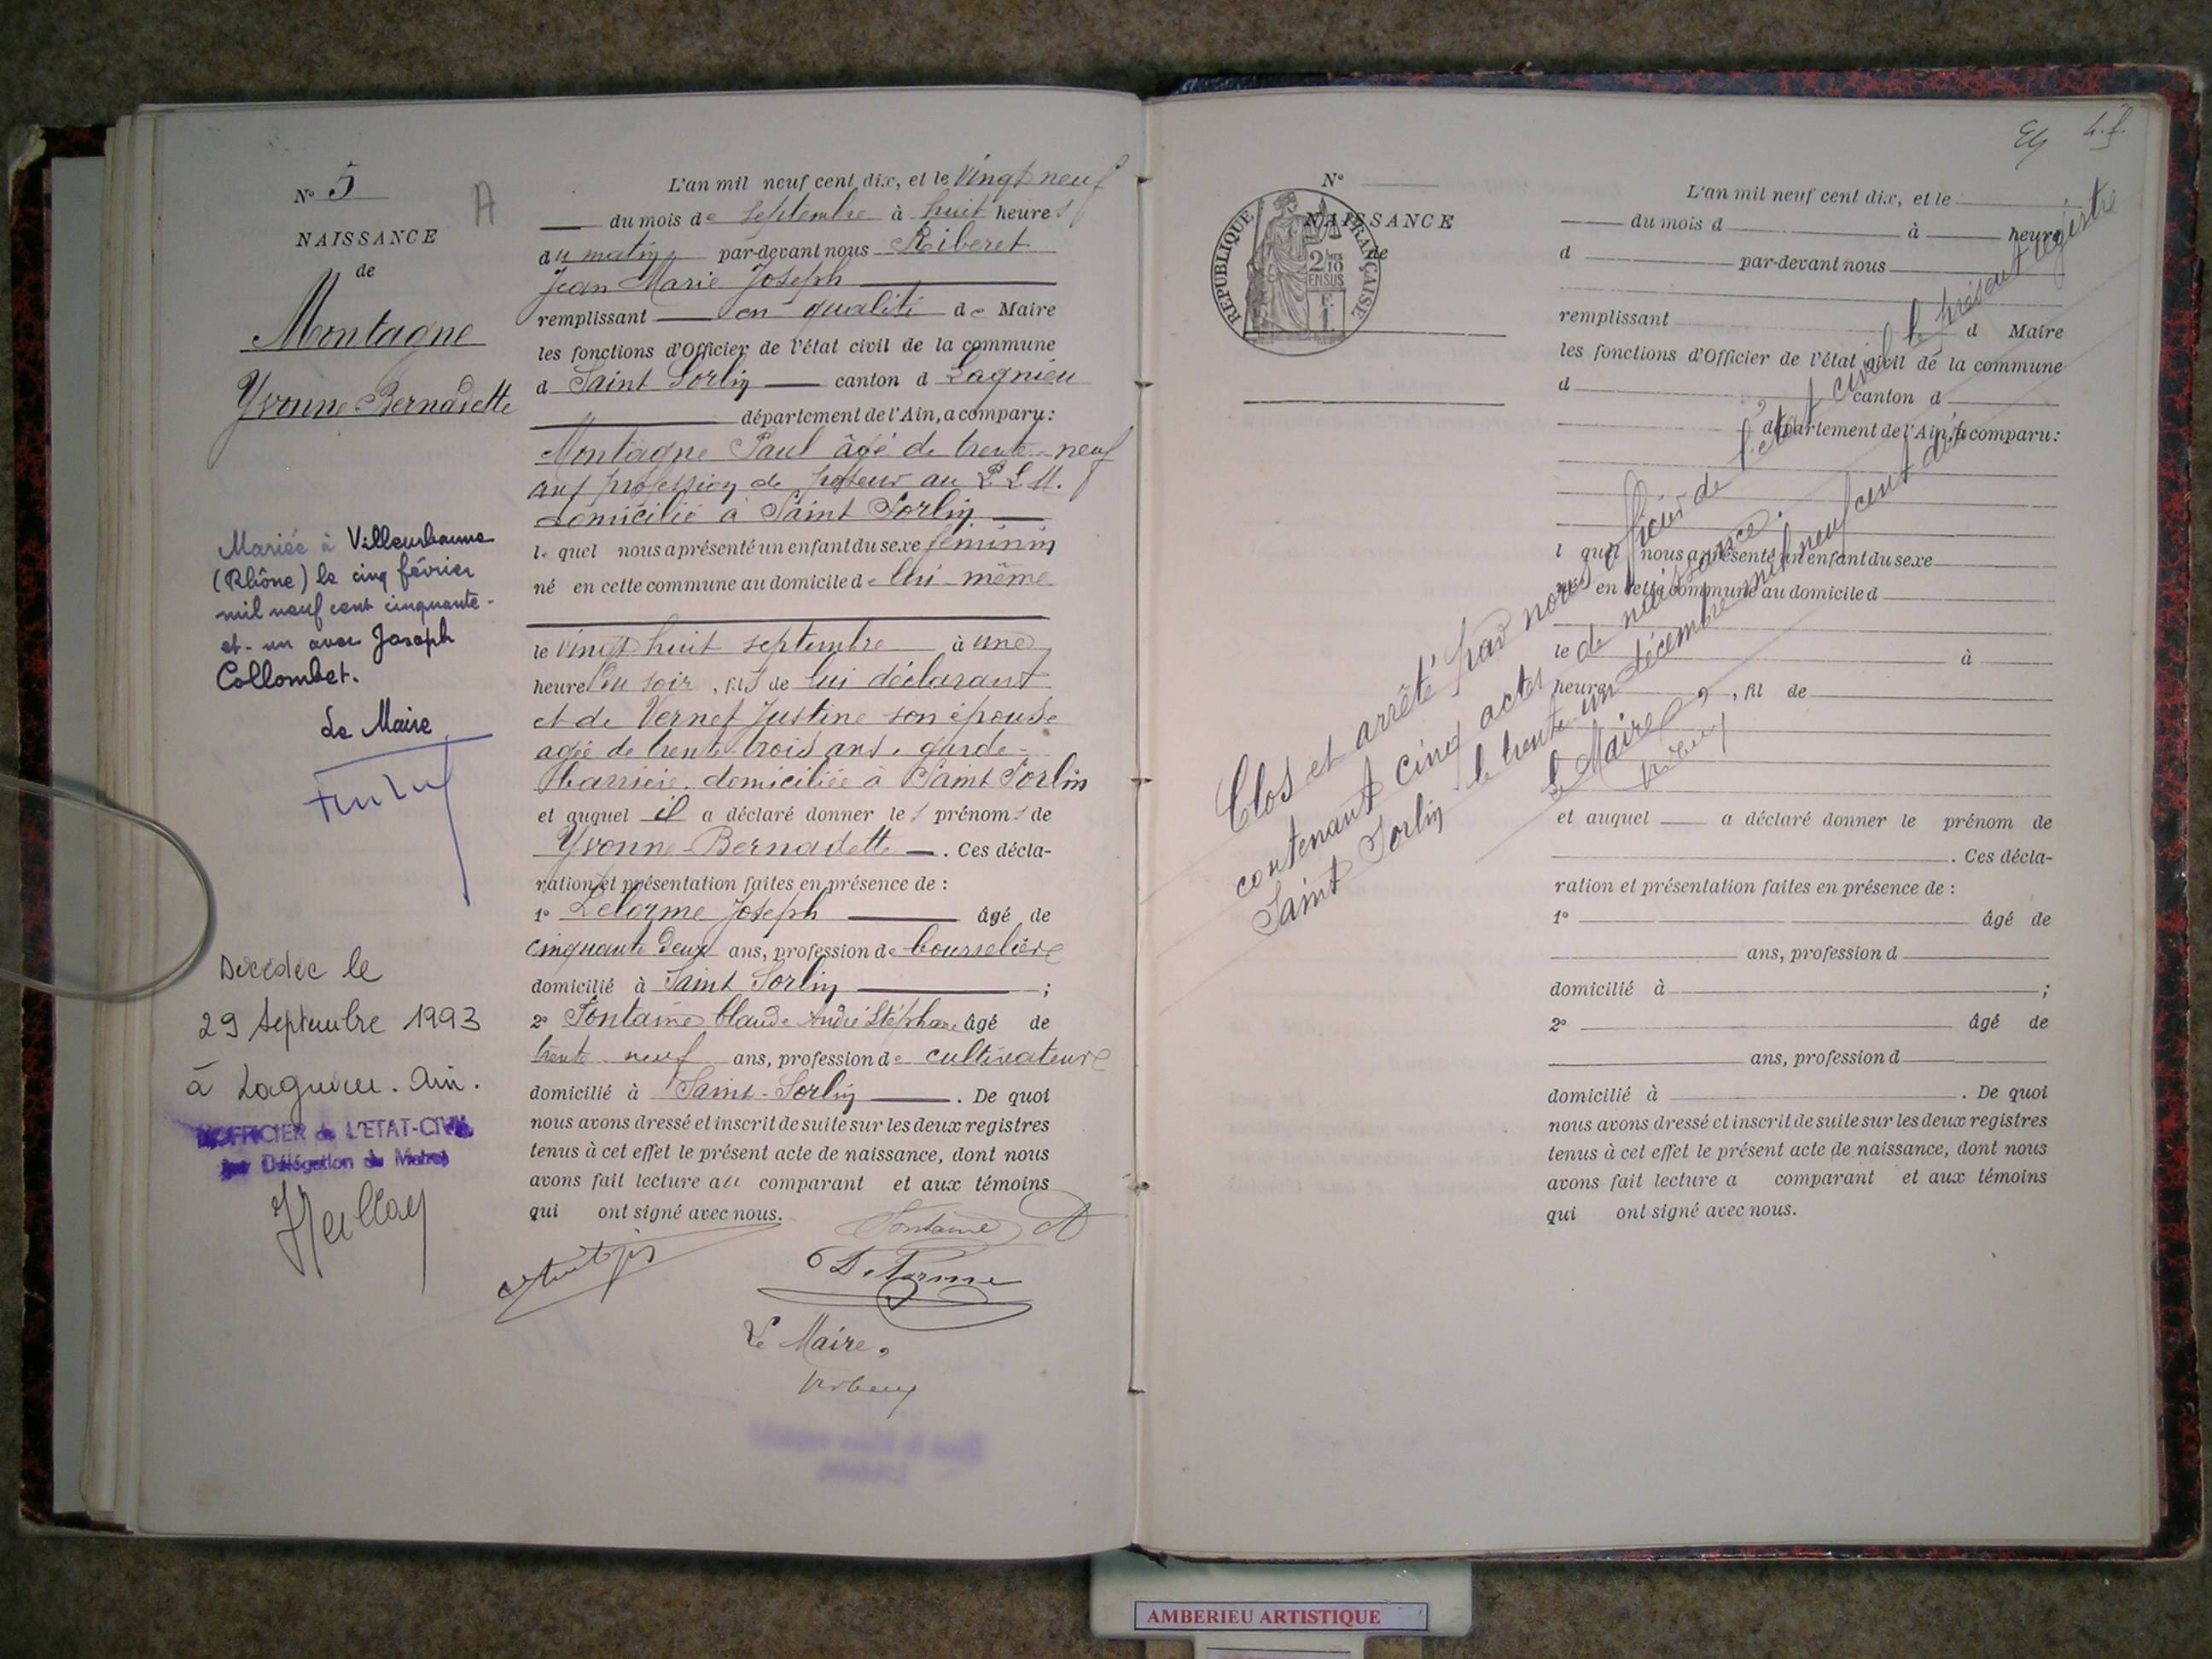 N° 5
A
NAISSANCE
de
Montagne
Yvonne Bernadette
Mariée à Villeurbanne
(Rhône) le cinq février
mil neuf cent cinquante-
et-un avec Joseph
Collombet.
Le Maire
Décédée le
29 septembre 1993
à Lagnieu. Ain.
L'OFFICIER de L'ETAT-CIVIL
par Délégation du Maire
L'an mil neuf cent dix, et le vingt neuf
du mois de septembre à huit heures
du matin par-devant nous Riberet
Jean Marie Joseph
remplissant en qualité de Maire
les fonctions d'Officier de l'état civil de la commune
d Saint Sorlin canton d Lagnieu
département de l'Ain, a comparu:
Montagne Paul âgé de trente-neuf
ans profession de poseur au P.L.M.
domicilié à Saint Sorlin
le quel nous a présenté un enfant du sexe féminin
né en cette commune au domicile de lui-même
le vingt huit septembre à une
heure du soir, fils de lui déclarant
et de Vernet Justine son épouse
agée de trente-trois ans, garde-
barrière, domiciliée à Saint Sorlin
et auquel il a déclaré donner les prénoms de
Yvonne-Bernadette. Ces décla-
ration et présentation faites en présence de :
1° Delorme Joseph âgé de
cinquante deux ans, profession de bourrelier
domicilié à Saint Sorlin ;
2° Fontaine Claude André Stéphane âgé de
trente neuf ans, profession de cultivateur
domicilié à Saint-Sorlin. De quoi
nous avons dressé et inscrit de suite sur les deux registres
tenus à cet effet le présent acte de naissance, dont nous
avons fait lecture au comparant et aux témoins
qui ont signé avec nous.
Fontaine
Delorme
Le Maire,
4.f.
N°
NAISSANCE
de
REPUBLIQUE FRANÇAISE
2/10
EN SUS
F.
1.
L'an mil neuf cent dix, et le
du mois d à heure
d par-devant nous
remplissant d Maire
les fonctions d'Officier de l'état civil de la commune
d canton d
département de l'Ain, a comparu:
l quel nous a présenté un enfant du sexe
né en cette commune au domicile d
le à
heure , fil de
et auquel a déclaré donner le prénom de
. Ces décla-
ration et présentation faites en présence de :
1° âgé de
ans, profession d
domicilié à ;
2° âgé de
ans, profession d
domicilié à . De quoi
nous avons dressé et inscrit de suite sur les deux registres
tenus à cet effet le présent acte de naissance, dont nous
avons fait lecture a comparant et aux témoins
qui ont signé avec nous.
Clos et arrêté par nous officier de l'état civil le présent registre
contenant cinq actes de naissance.
Saint Sorlin le trente un décembre mil neuf cent dix
Le Maire,
AMBERIEU ARTISTIQUE